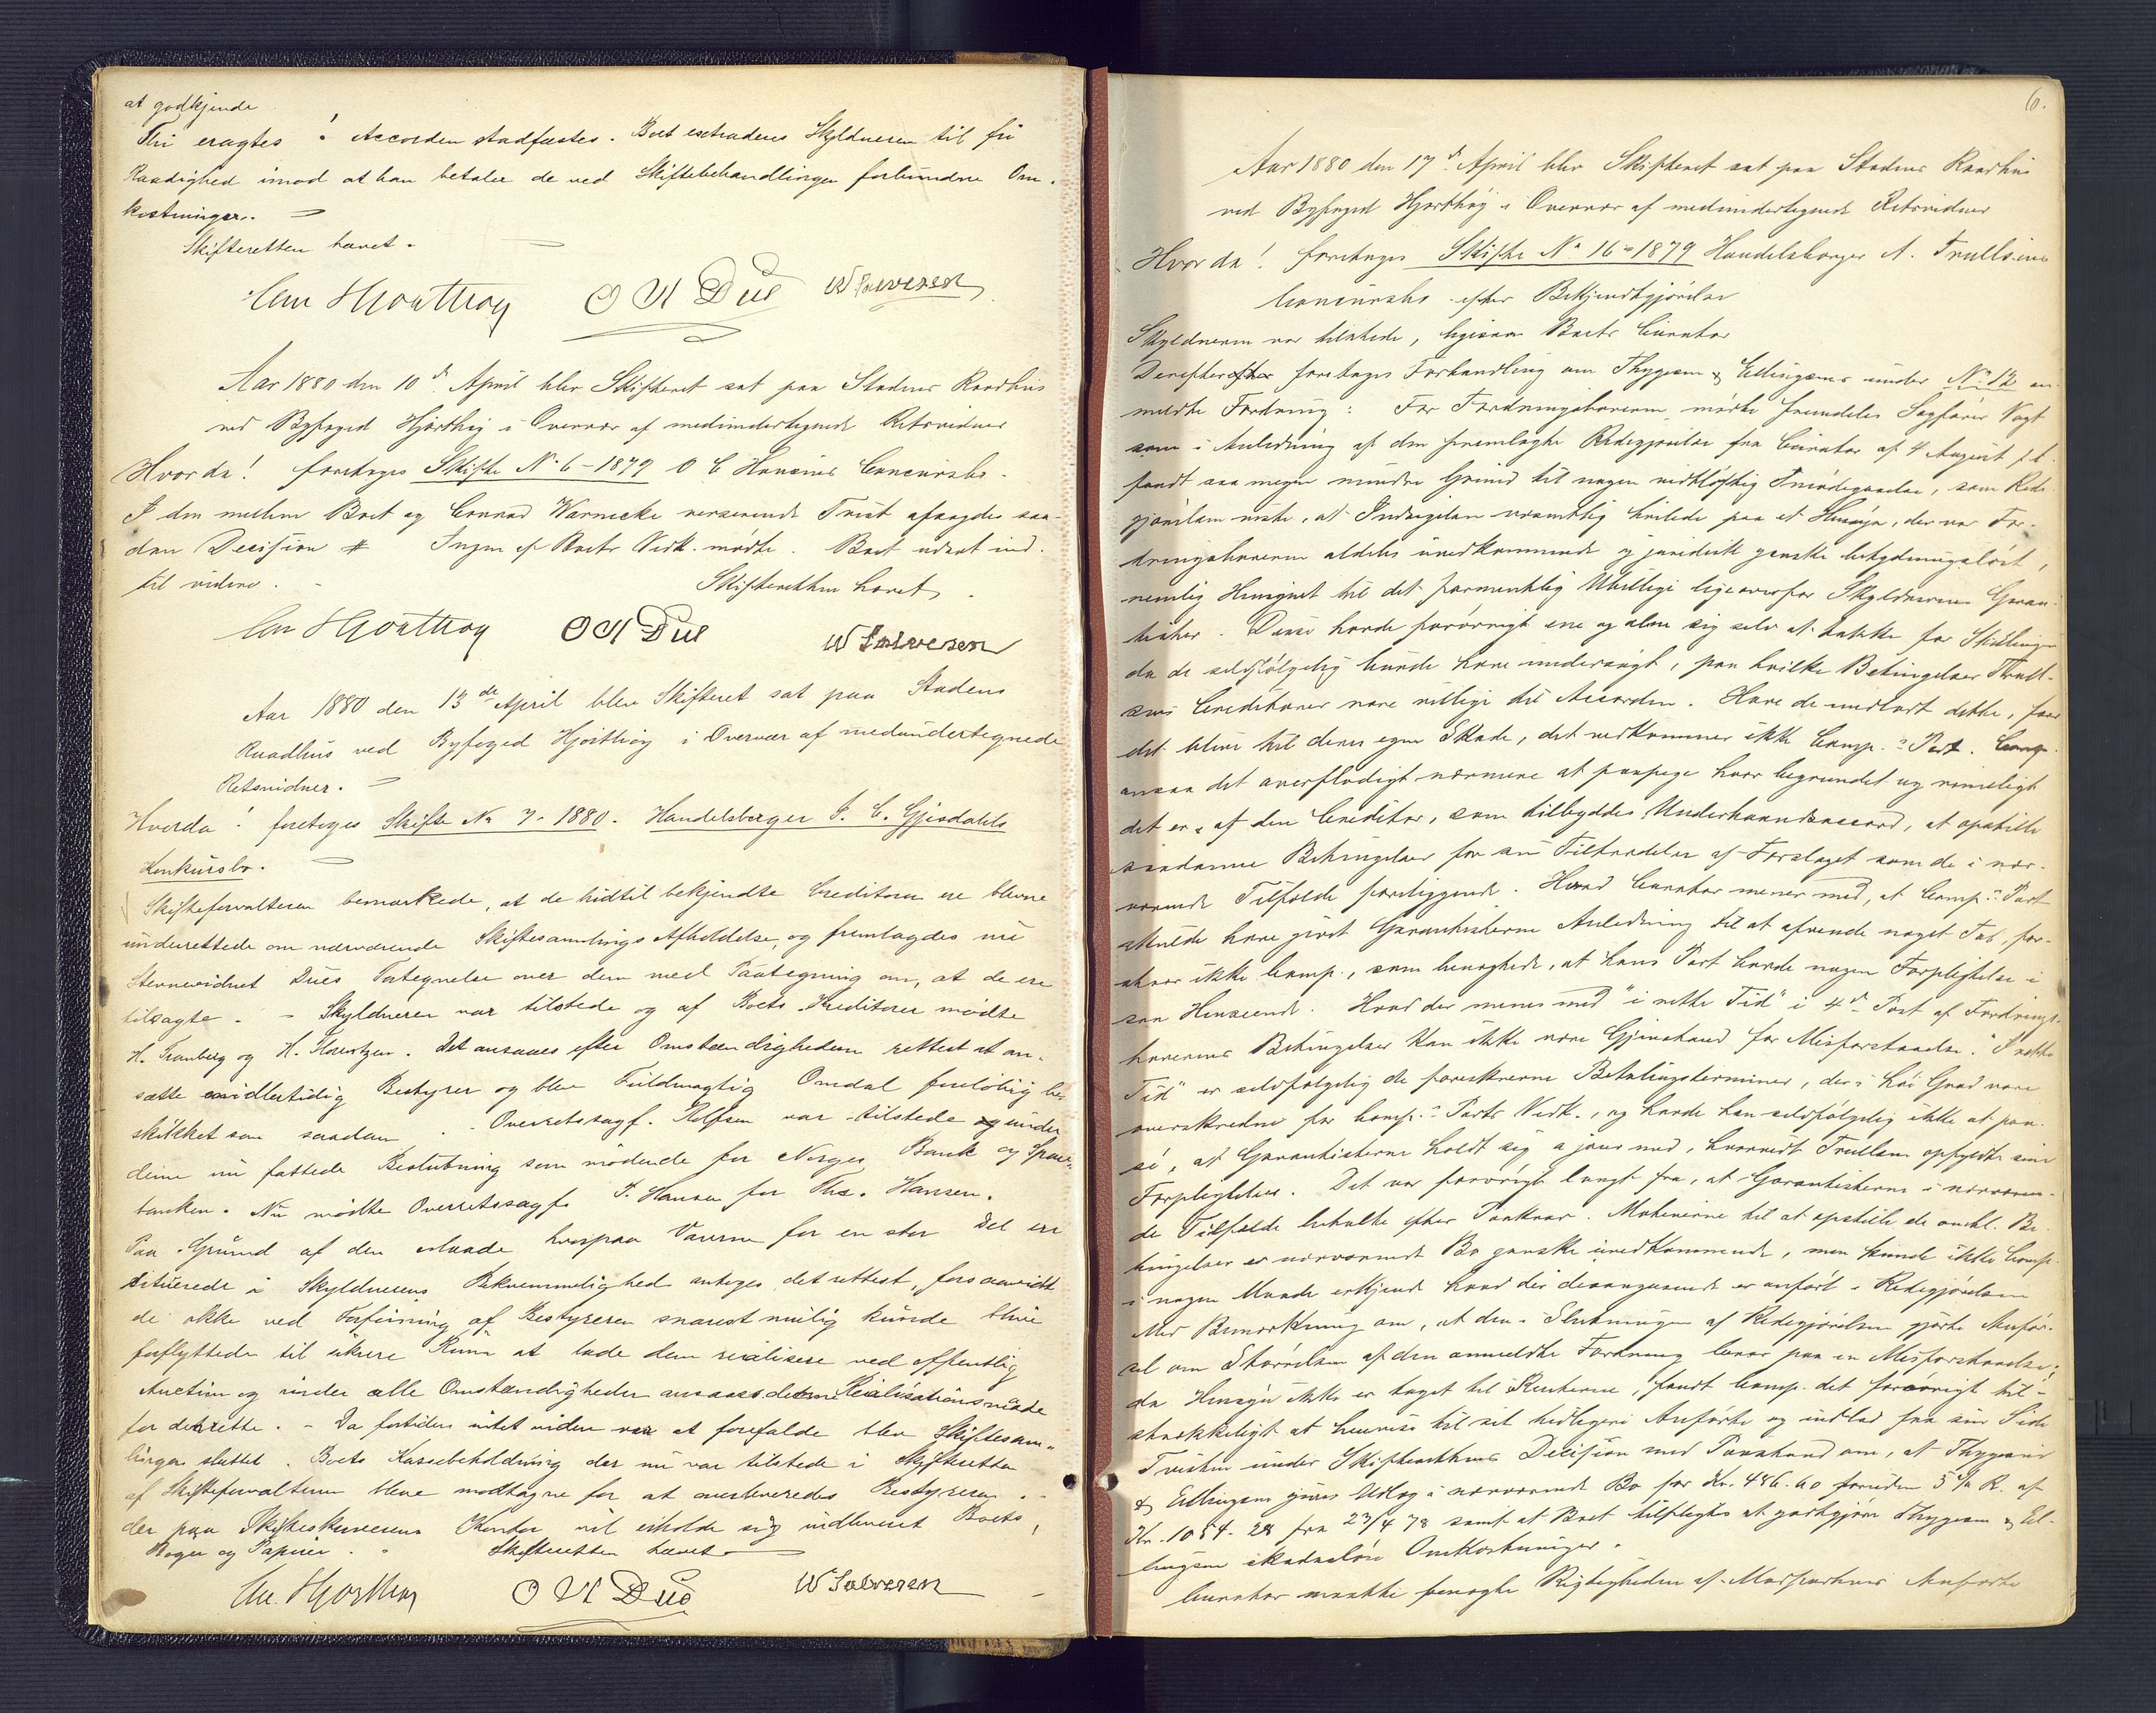 at godkjende
Thi eragtes: Accorden stadfæstes. Boet extraderes Skyldneren til fri
Raadighed imod at han betaler de ved Skiftebehandlingen forbundne Om-
kostninger. =
Skifteretten hævet.
Chr Hjorthøy O N Due W Salvesen
Aar 1880 den 10de April blev Skifteret sat paa Stadens Raadhus
ved Byfoged Hjorthøy i Overvær af medundertegnede Retsvidner
Hvorda! foretoges Skifte No 6-1879 O C Hansens Concursbo.
I den mellem Boet og Conrad Warnecke verserende Tvist afsagdes saa-
dan Decision # Ingen af Boets Vedk. mødte. Boet udsat ind-
til videre.
Skifteretten hævet.
Chr Hjorthøy O N Due W Salvesen
Aar 1880 den 13de April blev Skifteret sat paa Stadens
Raadhus ved Byfoged Hjorthøy i Overvær af medundertegnede
Retsvidner. =
Hvorda! foretoges Skifte No 7-1880. Handelsberger S. C. Gjisdahls
Konkursbo.
Skifteforvalteren bemærkede, at de hidtil bekjendte Creditorer ere blevne
underrettede om nærværende Skiftesamlings Afholdelse, og fremlagdes nu
Stevnevidnet Dues Fortegnelse over dem med Paategning om, at de ere
tilsagte. - Skyldneren var tilstede og af Boets Kreditorer mødte
H. Granberg og H. Florentzen. Det ansaaes efter Omstændigheden rettest at an-
sætte midlertidig Bestyrer og blev Fuldmægtig Omdal foreløbig be-
skikket som saadan. - Overretssagf. Rolfsen var tilstede og under
denne nu fattede Beslutning som mødende for Norges Bank og Spare-
banken. Nu mødte Overretssagf. P. Hansen for Ths. Hansen.
Paa Grund af den Maade hvorpaa Varerne for en stor Del ere
situerede i Skyldnerens Bekvemmelighed antoges det rettest, forsaavidt
de ikke ved Føisning af Bestyreren snarest mulig kunde blive
forflyttede til sikrere Rum at lade dem realisere ved offentlig
Auction og under alle Omstændigheder ansaaes denne Realisationsmaade
for den rette. - Da fortiden intet videre var at forefalde blev Skiftesam-
lingen sluttet. Boets Kassebeholdning der nu var tilstede i Skifteretten
af Skifteforvalteren blev modtagne for at overleveredes Bestyreren
der paa Skifteskriverens Kontor vil erholde sig udleveret Boets
Bøger og Papirer. Skifteretten hævet
Chr. Hjorthøy O N Due W Salvesen
6.
Aar 1880 den 17de April blev Skifteret sat paa Stadens Raadhus
ved Byfoged Hjorthøy i Overvær af medundertegnede Retsvidner
Hvorda! foretoges Skifte No 16-1879 Handelsborger A. Trullsens
Concursbo efter Bekjendtgjørelse
Skyldneren var tilstede, ligesom Boets Curator
Derefter foretoges Forhandling om Thygesen & Ellingsens under No 12 an-
meldte Fordring: For Fordringshaverne mødte fremdeles Sagfører Vogt
som i Anledning af den fremlagte Redegjørelse fra Curator af 4 August f. A.
fandt saa meget mindre Grund til nogen vidtløftig Imødegaaelse, som Rede-
gjørelsen viste, at Indsigelsen væsentlig hvilede paa et Hensyn, der var For-
dringshaverne aldeles uvedkommende og juridisk ganske betydningsløst,
nemlig Hensynet til det formentlig Ubillige ligeoverfor Skyldnerens Garan-
tister. Disse havde forøvrigt ene og alene sig selv at takke for Stillingen
da de selvfølgelig burde have undersøgt, paa hvilke Betingelser Trull-
sens Creditorer vare villige til Accorden. Have de undladt dette, faar
det blive til deres egen Skade, det vedkommer ikke Comp.s Part. Comp.
ansaa det overflødigt nærmere at paapege hvor begrundet og rimeligt
det er, af den Creditor, som tilbyddes Underhaandsaccord, at opstille
saadanne Betingelser for sin Tiltrædelse af Forslaget som de i nær-
værende Tilfælde foreliggende. Hvad Curator mener med, at Comp.s Part
skulde have givet Garantisterne Anledning til at afvende noget Tab, for-
staar ikke Comp., som benægtede, at hans Part havde nogen Forpligtelse i
saa Henseende. Hvad der menes med "i rette Tid" i 4de Post af Fordrings-
haverens Betingelser kan ikke være Gjenstand for Misforstaaelse. "I rette
Tid" er selvfølgelig de foreskrevne Betalingsterminer, der i høi Grad vare
overskredne for Comp.s Parts Vedk., og havde han selvfølgelig ikke at paa-
se, at Garantisterne holdt sig a jour med, hvorvidt Trullsen opfyldte sine
Forpligtelser. Det var forøvrigt langt fra, at Garantisterne i nærværen-
de Tilfælde betalte efter Paakrav. Motiverne til at opstille de omhl. Be-
tingelser er nærværende Bo ganske uvedkommende, men kunde ikke Comp.
i nogen Maade erkjende hvad der desangaaende er anført i Redegjørelsen
Med Bemærkning om, at den i Slutningen af Redegjørelsen gjorte Anfør-
sel om Størrelsen af den anmeldte Fordring beror paa en Misforstaaelse,
da Hensyn ikke er taget til Renterne, fandt Comp. det forøvrigt til-
strækkeligt at henvise til sit tidligere Anførte og indlod fra sin Side
Tvisten under Skifterettens Decision med Paastand om, at Thygesen
& Ellingsen gives Udlæg i nærværende Bo for Kr. 486.60 foruden 5% R. af
Kr. 1054.28 fra 23/4 78 samt at Boet tilpligtes at godtgjøre Thygesen & El-
lingsen skadesløse Omkostninger.
Curator maatte benægte Rigtigheden af Modpartens Anførte